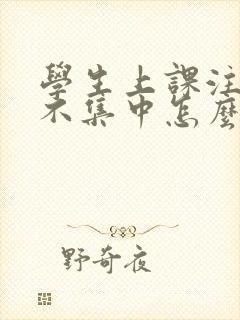 學生上課注
不集中怎麼
野奇夜